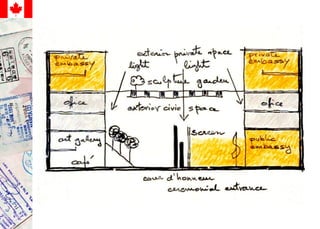 private embassy
exterior private space
private embassy
light
light
sculpture garden
office
exterior civic space
office
art gallery
screen
public embassy
café
cour d'honneur
ceremonial entrance